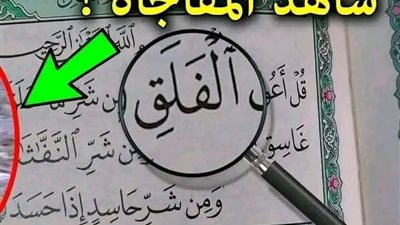 شاهد المفاجاة ؟
ٱللَّهِ ٱلرَّحْمَٰنِ ٱلرَّحِيمِ
قُلْ أَعُو ٱلْفَلَقِ مِن شَرِّ مَا
غَاسِقٍ مِن شَرِّ ٱلنَّفَّٰثَٰ
وَمِن شَرِّ حَاسِدٍ إِذَا حَسَدَ